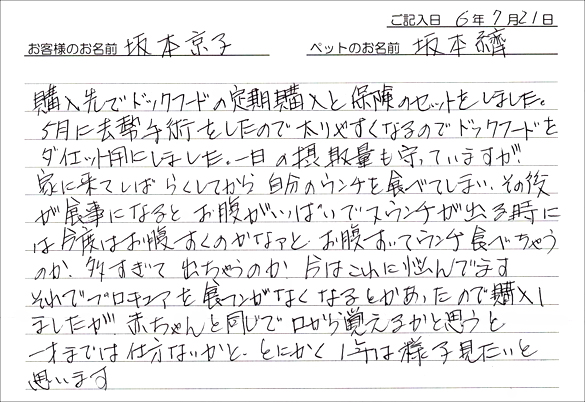 ご記入日 6年7月21日
お客様のお名前 坂本京子 ペットのお名前 坂本
購入先でドックフードの定期購入と保険のセットをしました。
5月に去勢手術をしたので太りやすくなるのでドックフードを
ダイエット用にしました。一日の摂取量も守っていますが
家に来てしばらくしてから自分のウンチを食べてしまい、その後
が食事になるとお腹がいっぱいで又ウンチが出る時に
は今度はお腹すくのかなァと お腹すいてウンチ食べちゃう
のか 多すぎて出ちゃうのか 今はこれに悩んでます
それでプロキュアを食フンがなくなるとかあったので購入し
ましたが 赤ちゃんと同じで口から覚えるかと思うと
一才までは仕方ないかと、とにかく1年は様子見たいと
思います